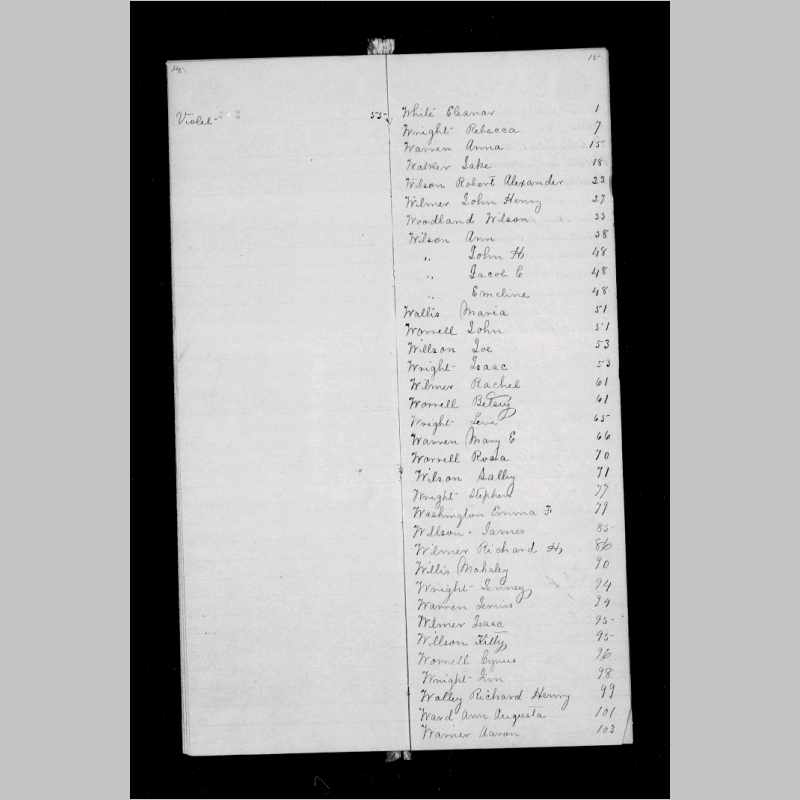 Violet 53
15
White Eleanor 1
Wright Rebecca 7
Warren Anna 15
Walker Jake 18
Wilson Robert Alexander 22
Wilmer John Henry 27
Woodland Wilson 33
Wilson Ann 38
" John H 48
" Jacob E 48
" Emeline 48
Wallis Maria 51
Worrell John 51
Willson Joe 53
Wright Isaac 53
Wilmer Rachel 61
Worrell Betsey 61
Wright Levi 65
Warren Mary E 66
Worrell Rosa 70
Wilson Salley 71
Wright Stephen 77
Washington Emma F 79
Willson James 85
Wilmer Richard H 86
Willis Mahaley 90
Wright Jenney 94
Warren 94
Wilmer Isaac 95
Willson Kitty 95
Worrell Cyrus 96
Wright Jim 98
Walley Richard Henry 99
Ward Ann Augusta 101
Warner Aaron 103